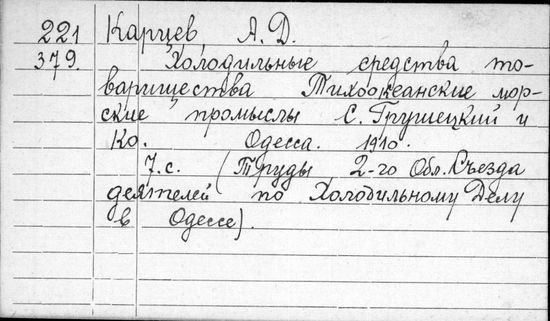 221 Карцев А. Д.
379. Холодильные средства то-
варищества "Тихоокеанские мор-
ские промыслы" С. Грушецкий и
Ко. Одесса. 1910.
7. с. (Труды 2-го Обл. Съезда
деятелей по Холодильному Делу
в Одессе).